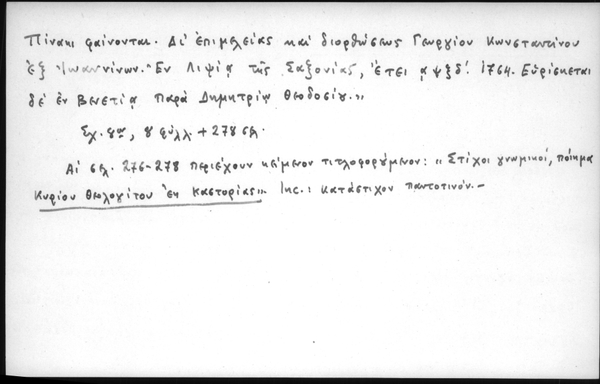 Πίνακι φαίνονται. Δι' ἐπιμελείας καὶ διορθώσεως Γεωργίου Κωνσταντίνου
ἐξ Ἰωαννίνων. Ἐν Λιψίᾳ τῆς Σαξονίας, Ἔτει ᾳψξδ΄. 1764. Εὑρίσκεται
δὲ ἐν Βενετίᾳ παρὰ Δημητρίῳ Θεοδοσίῳ.»
Σχ. 8ον, 8 φύλλ. + 278 σελ.
Αἱ σελ. 276-278 περιέχουν κείμενον τιτλοφορούμενον: «Στίχοι γνωμικοί, ποίημα
Κυρίου Θεολογίτου ἐκ Καστορίας». Inc.: κατάστιχον παντοτινόν.-